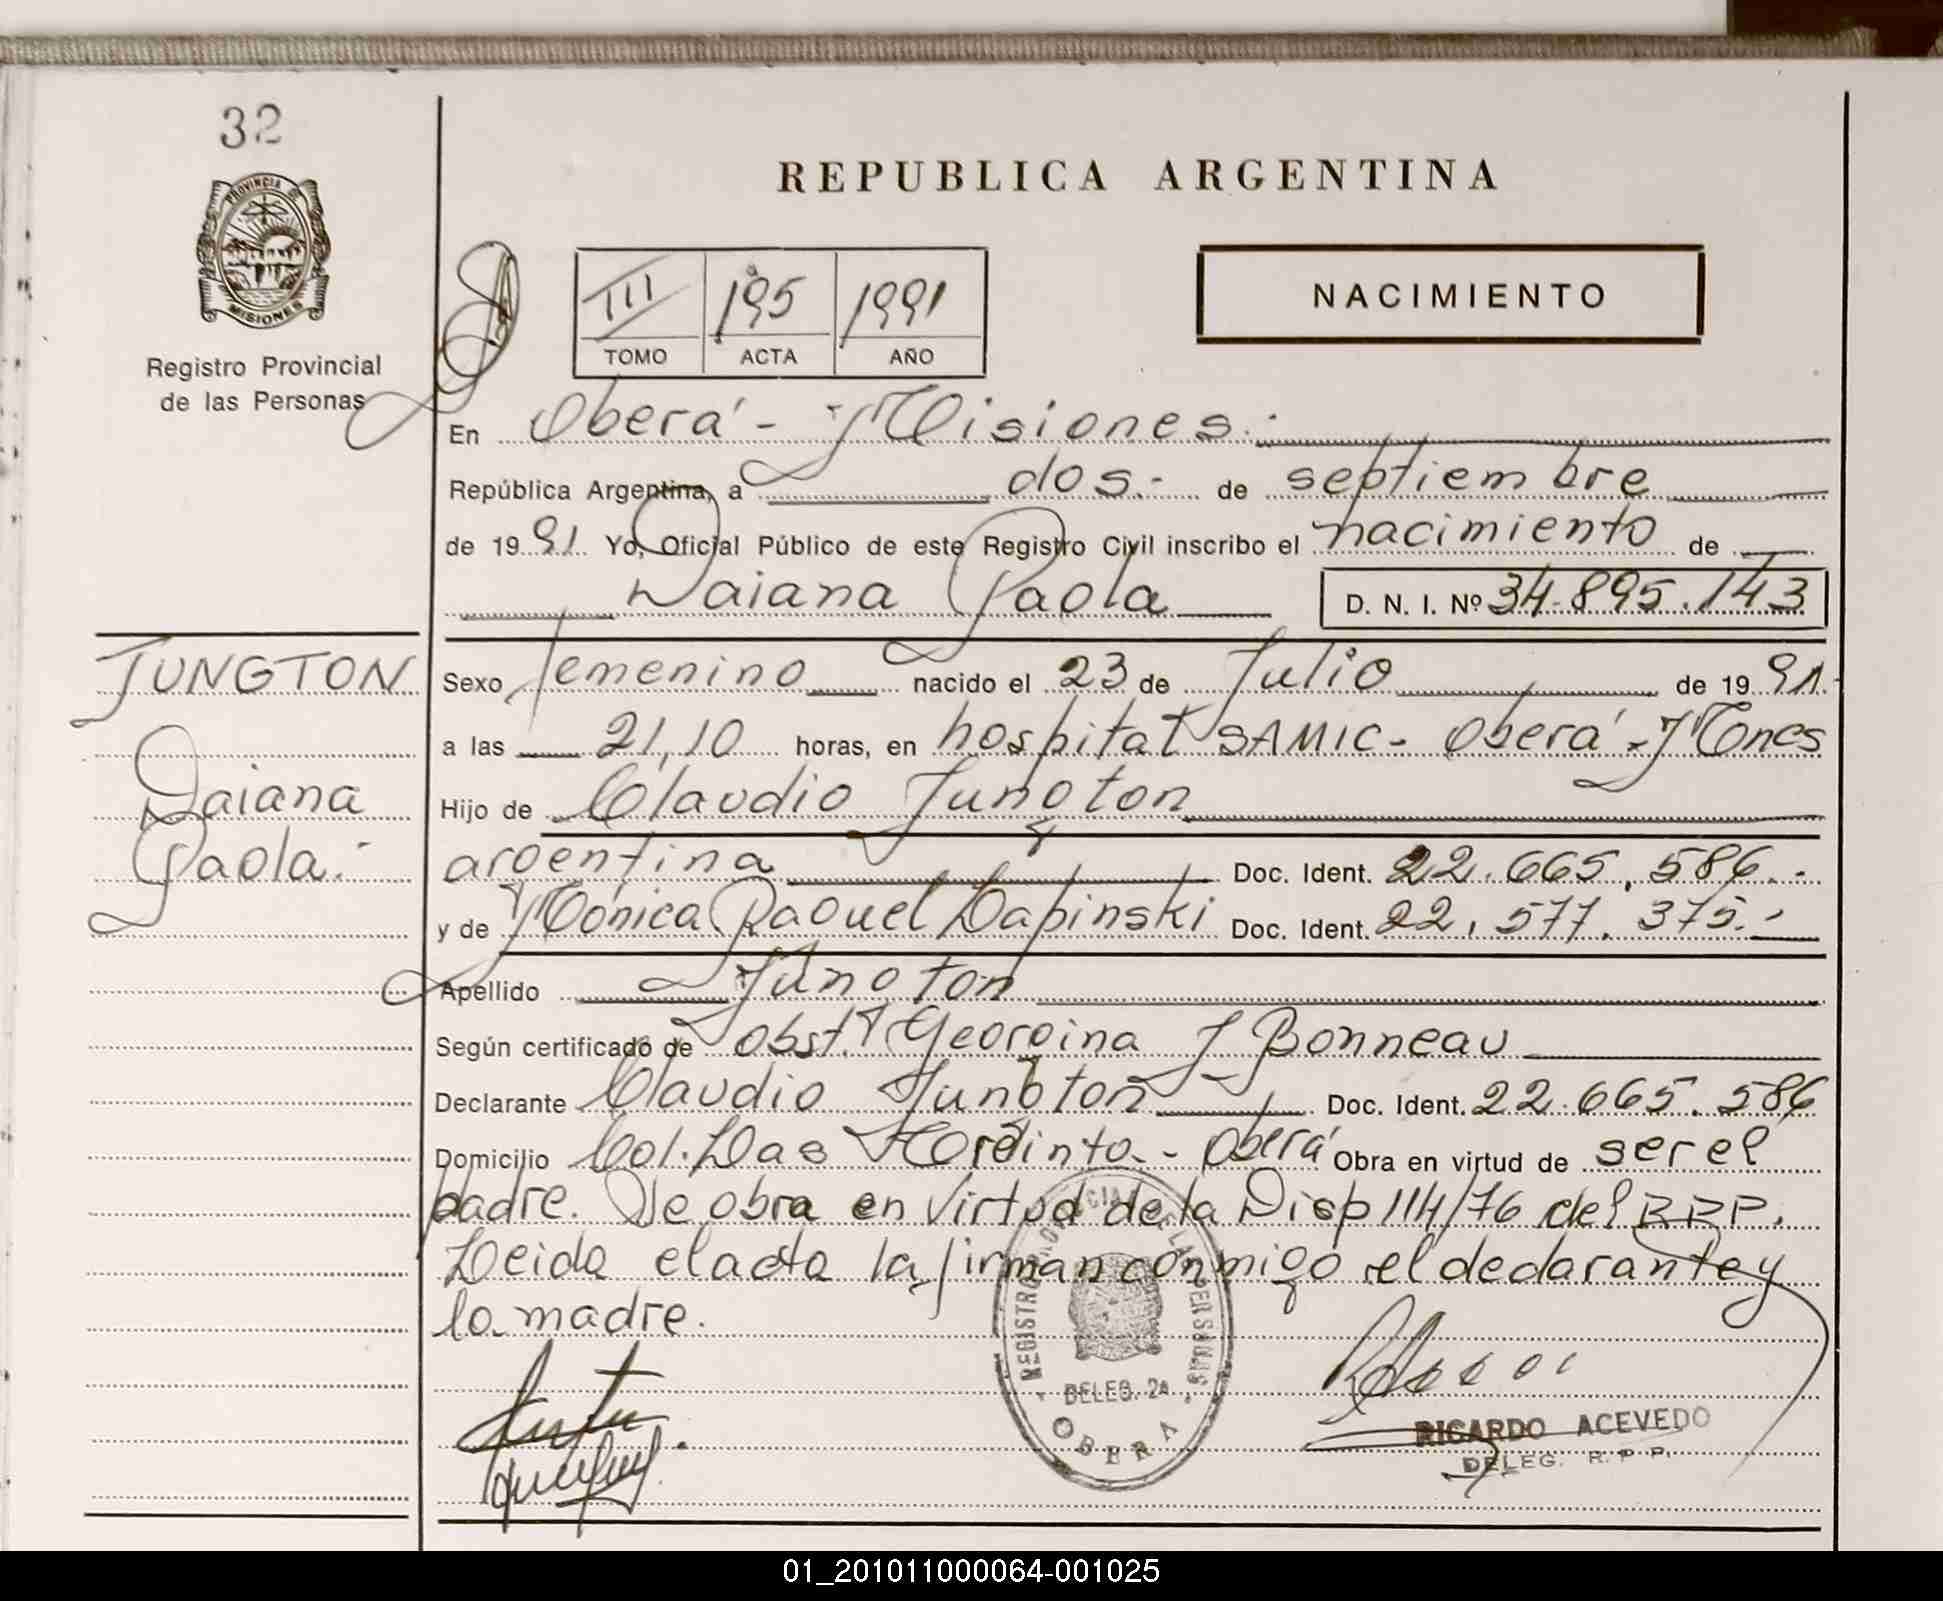 32
REPUBLICA ARGENTINA
PROVINCIA DE
MISIONES
Registro Provincial
de las Personas
III 195 1991
TOMO ACTA AÑO
NACIMIENTO
En Oberá - Misiones.
República Argentina, a dos.- de septiembre
de 1991 Yo, Oficial Público de este Registro Civil inscribo el nacimiento de
Daiana Paola D. N. I. Nº 34.895.143
JUNGTON
Daiana
Paola.-
Sexo femenino nacido el 23 de Julio de 1991.
a las 21,10 horas, en hospital SAMIC - Oberá - Mnes
Hijo de Claudio Jungton
argentina Doc. Ident. 22.665.586.-
y de Mónica Raquel Dapinski Doc. Ident. 22.577.375.-
Apellido Jungton
Según certificado de obst. Georgina J Bonneau
Declarante Claudio Jungton Doc. Ident. 22.665.586
Domicilio Col. - Oberá Obra en virtud de ser el
padre. Se obra en virtud de la Disp 114/76 del R.P.P.
Leida el acta la firman conmigo el declarante y
la madre.
REGISTRO PROVINCIAL DE LAS PERSONAS
DELEG. 2a
OBERA
RICARDO ACEVEDO
DELEG. R.P.P.
01_201011000064-001025